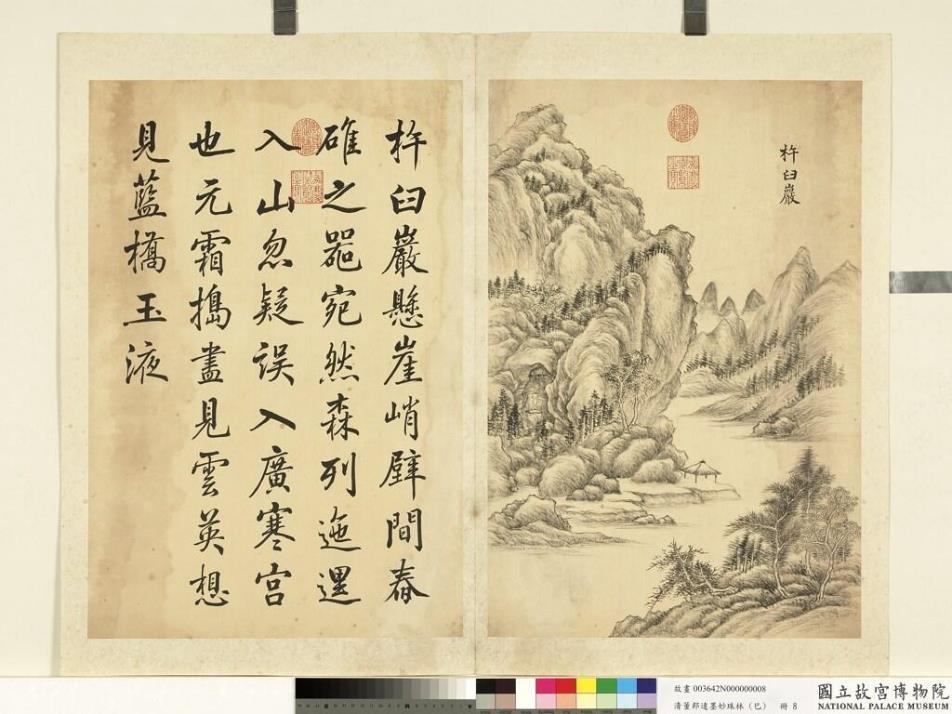 杵臼巖
杵臼巖懸崖峭壁間舂
碓之噐宛然森列迤邐
入山忽疑誤入廣寒宮
也元霜搗盡見雲英想
見藍橋玉液
故畫 003642N000000008
清董邦達墨妙珠林(巳) 冊 8
國立故宮博物院
NATIONAL PALACE MUSEUM